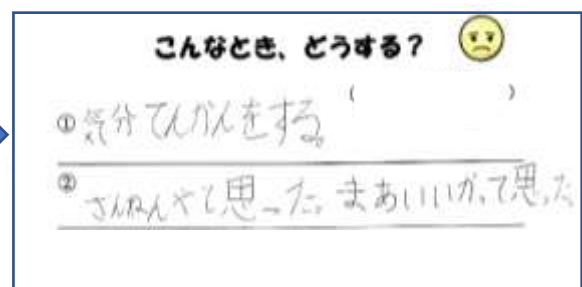 こんなとき、どうする？
（　　　　　　）
① 気分てんかんをする。
② ざんねんやと思った。まあいいかって思った